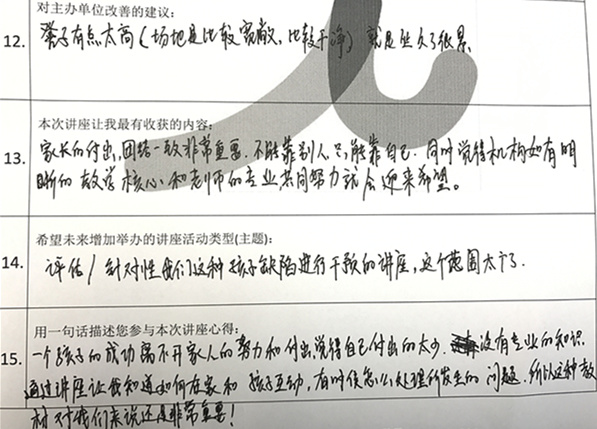 对主办单位改善的建议:
12. 凳子有点太高(场地是比较宽敞,比较干净)就是坐久了很累
本次讲座让我最有收获的内容:
13. 家长的付出,团结一致非常重要.不能靠别人,只能靠自己.同时觉得机构如有明
晰的教学核心和老师的专业共同努力就会迎来希望。
希望未来增加举办的讲座活动类型(主题):
14. 评估/针对性我们这种孩子缺陷进行干预的讲座,这个范围太广了.
用一句话描述您参与本次讲座心得:
15. 一个孩子的成功离不开家人的努力和付出,觉得自己付出的太少.没有专业的知识.
通过讲座让我知道如何在家和孩子互动,有时候怎么处理所发生的问题.所以这种教
材对我们来说还是非常重要!